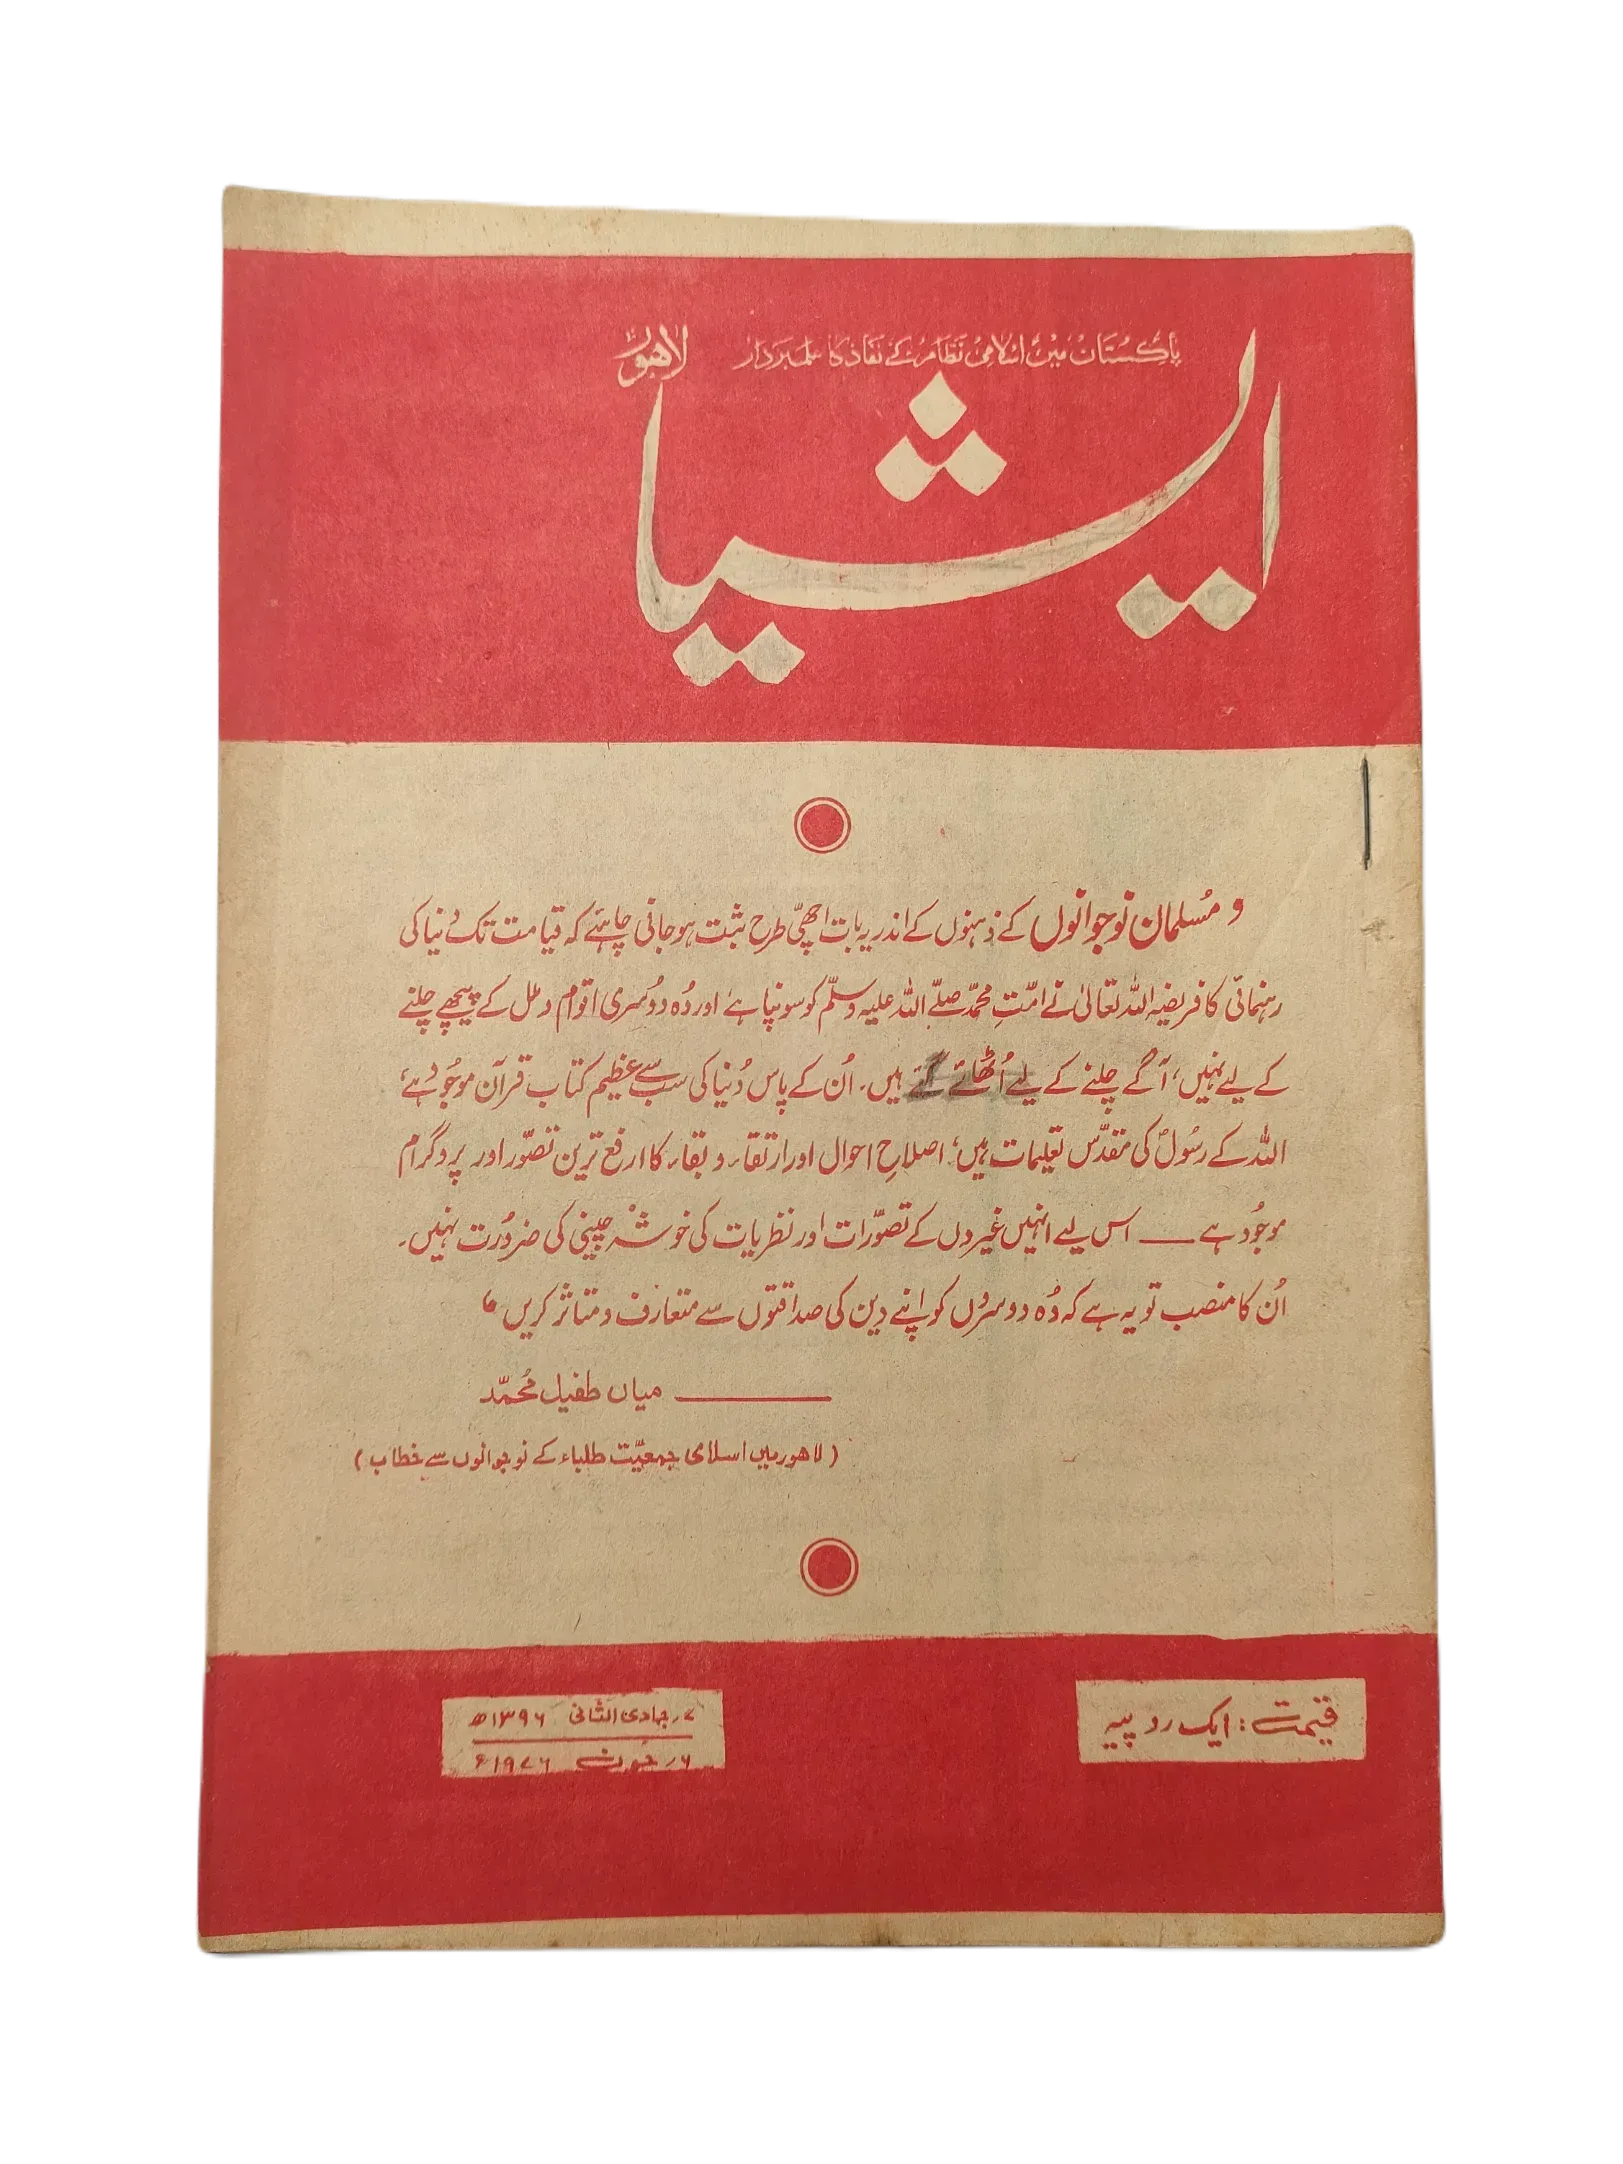 پاکستان میں اسلامی نظام کے نفاذ کا علمبردار
لاہور
ایشیا
” مسلمان نوجوانوں کے ذہنوں کے اندر یہ بات اچھی طرح ثبت ہو جانی چاہئے کہ قیامت تک دنیا کی
رہنمائی کا فریضہ اللہ تعالیٰ نے امّتِ محمّد صلے اللہ علیہ وسلّم کو سونپا ہے اور وُہ دوسری اقوام و ملل کے پیچھے چلنے
کے لیے نہیں، آگے چلنے کے لیے اُٹھائے گئے ہیں۔ اُن کے پاس دُنیا کی سب سے عظیم کتاب قرآن موجُود ہے،
اللہ کے رسُولؐ کی مقدّس تعلیمات ہیں، اصلاحِ احوال اور ارتقاء و بقاء کا ارفع ترین تصوّر اور پروگرام
موجُود ہے —— اس لیے انہیں غیروں کے تصوّرات اور نظریات کی خوشہ چینی کی ضرورت نہیں۔
اُن کا منصب تو یہ ہے کہ وُہ دوسروں کو اپنے دین کی صداقتوں سے متعارف و متاثر کریں “
—— میاں طفیل محمّد
(لاہور میں اسلامی جمعیّت طلباء کے نوجوانوں سے خطاب)
قیمت: ایک روپیہ
۷؍ جمادی الثانی ۱۳۹۶ھ
۶؍ جون ۱۹۷۶ء